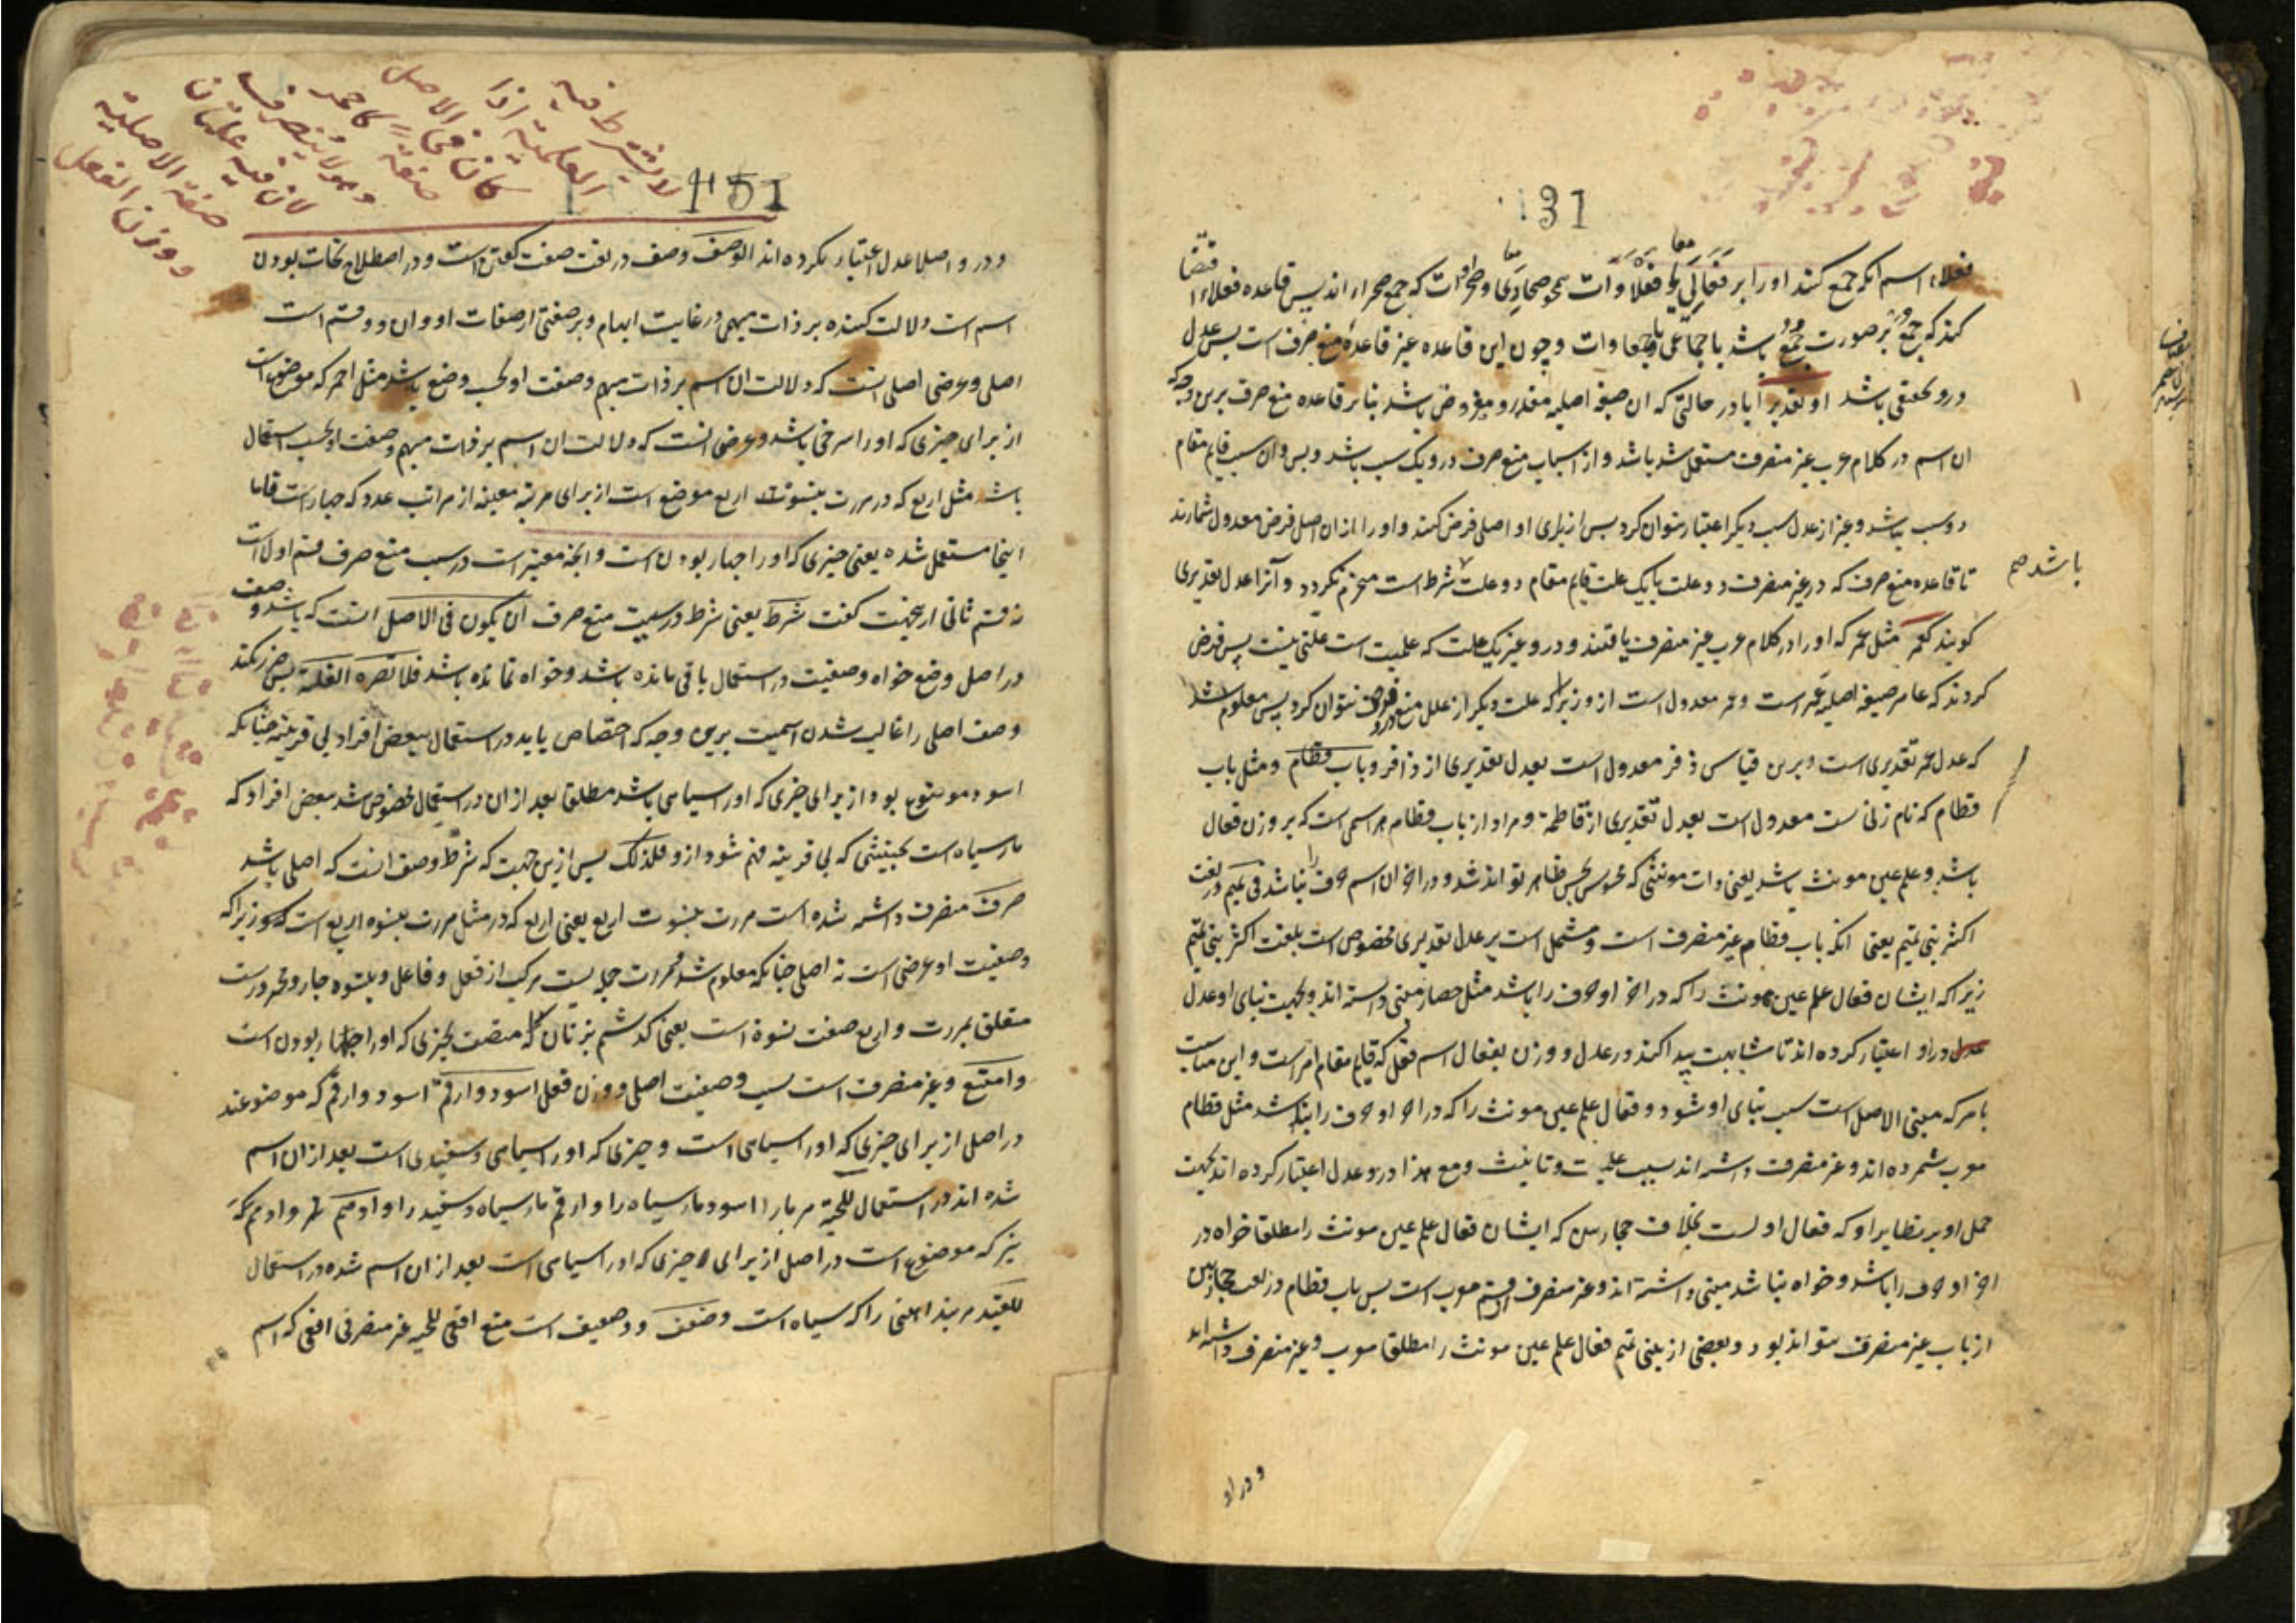 131
فعلاء اسم انکه جمع کنند اورا بر فعالی یا فعلاوات همچو صحاری و صحراوات که جمع صحراء اند پس قاعده فعلاء اقتضا
کند که جمع بر صورت جمع باشد یا جماعی یا جمعاوات و چون این قاعده غیر قاعده منع صرف است پس عدل
درو تحقیقی باشد او تقدیرا یا در حالتی که ان صیغه اصلیه مقدر و مفروض باشد بنابر قاعده منع صرف برین وجه که
ان اسم در کلام عرب غیر منصرف مستعمل شد باشد و از اسباب منع صرف درو یک سبب باشد و بس و ان سبب قایم مقام
دو سبب نباشد و غیر از عدل سبب دیگر اعتبار نتوان کرد پس از برای او اصلی فرض کنند و اورا از ان اصل فرض معدول شمارند
تا قاعده منع صرف که در غیر منصرف دو علت یا یک علت قایم مقام دو علت شرط است منخرم نگردد و آنرا عدل تقدیری
باشد صح
کویند کعمر مثل عمر که اورا در کلام عرب غیر منصرف یافتند و درو غیر یک علت که علمیت است علتی نیست پس فرض
کردند که عامر صیغه اصلیه عمر است و عمر معدول است ازو زیرا که علت دیگر از علل منع صرف درو فرض نتوان کرد پس معلوم شد
که عدل عمر تقدیری است و برین قیاس زفر معدول است بعدل تقدیری از زافر و باب قطام و مثل باب
قطام که نام زنی ست معدول است بعدل تقدیری از قاطمة و مراد از باب قطام هر اسمی است که بر وزن فعال
باشد و علم عین مونث باشد یعنی ذات مونثی که محسوس بحس ظاهر تواند شد و در اخر ان اسم حرف را نباشد فی تمیم در لغت
اکثر بنی تمیم یعنی انکه باب قطام غیر منصرف است و مشتمل است بر عدل تقدیری مخصوص است بلغت اکثر بنی تمیم
زیرا که ایشان فعال علم عین مونث را که در اخر او حرف را باشد مثل حضار مبنی داشته اند و بجهت بنای او عدل
در او اعتبار کرده اند تا مشابهت پیدا کند در عدل و وزن بفعال اسم فعل که قایم مقام امر است و این مناسبت
بامر که مبنی الاصل است سبب بنای او شود و فعال علم عین مونث را که در اخر او حرف را نباشد مثل قطام
معرب شمرده اند و غیر منصرف داشته اند بسبب علمیت و تانیث و مع هذا درو عدل اعتبار کرده اند بجهت
حمل او بر نظایر او که فعال اولست بخلاف حجازیین که ایشان فعال علم عین مونث را مطلقا خواه در
اخر او حرف را باشد و خواه نباشد مبنی داشته اند و غیر منصرف قسم معرب است پس باب قطام در لغت حجازیین
از باب غیر منصرف نتواند بود و بعضی از بنی تمیم فعال علم عین مونث را مطلقا معرب و غیر منصرف داشته اند
و درو
لا یشترط فیه
العلمیة اذا
کان فی الاصل
صفة کاحمر
وهو لا ینصرف
لان فیه علتان
صفة الاصلیة
و وزن الفعل
151
و درو اصلا عدل اعتبار نکرده اند الوصف وصف در لغت صفت کفتن است و در اصطلاح نحات بودن
اسم است دلالت کننده بر ذات مبهمی در غایت ابهام و بر صفتی از صفات او و ان دو قسم است
اصلی و عرضی اصلی انست که دلالت ان اسم بر ذات مبهم و صفت او بحسب وضع باشد مثل احمر که موضوع است
از برای چیزی که اورا سرخی باشد و عرضی انست که دلالت ان اسم بر ذات مبهم و صفت او بحسب استعمال
باشد مثل اربع که در مررت بنسوة اربع موضوع است از برای مرتبه معینه از مراتب عدد که چهار است فاما
اینجا مستعمل شده یعنی چیزی که اورا چهار بودن است و انچه معتبر است در سبب منع صرف قسم اول است
نه قسم ثانی از نجهت کفت شرطه یعنی شرط در سبیت منع صرف ان یکون فی الاصل انست که باشد وصف
در اصل وضع خواه وصفیت در استعمال باقی مانده باشد و خواه نمانده باشد فلا تضره الغلبة پس ضرر نکند
وصف اصلی را غالب شدن اسمیت برین وجه که اختصاص یابد در استعمال ببعض افراد بی قرینه چنانکه
اسود موضوع بود از برای چیزی که اورا سیاهی باشد مطلقا بعد از ان در استعمال مخصوص شد ببعض افراد که
مار سیاه است بحیثیتی که بی قرینه فهم شود ازو فلذلک پس ازین جهت که شرط وصف انست که اصلی باشد
صرف منصرف داشته شده است مررت بنسوة اربع یعنی اربع که در مثل مررت بنسوة اربع است زیرا که
وصفیت او عرضی است نه اصلی چنانکه معلوم شد مررت جمله یست مرکب از فعل و فاعل و بنسوة جار و مجرورست
متعلق بمررت و اربع صفت نسوة است یعنی کذشتم بزنان که متصف بچیزی که اورا چهار بودن است
و امتنع و غیر منصرف است بسبب وصفیت اصلی و وزن فعلی اسود و ارقم اسود و ارقم که موضوعند
در اصل از برای چیزی که اورا سیاهی است و چیزی که اورا سیاهی و سفیدی است بعد از ان اسم
شده اند در استعمال للحیة مر مار را اسود مار سیاه را و ارقم مار سیاه و سفید را و ادهم و ادهم که
نیز که موضوع است در اصل از برای چیزی که اورا سیاهی است بعد از ان اسم شده در استعمال
للقید مر بند اهنی را که سیاه است و ضعف و ضعیف است منع افعی للحیة غیر منصرفی افعی که اسم